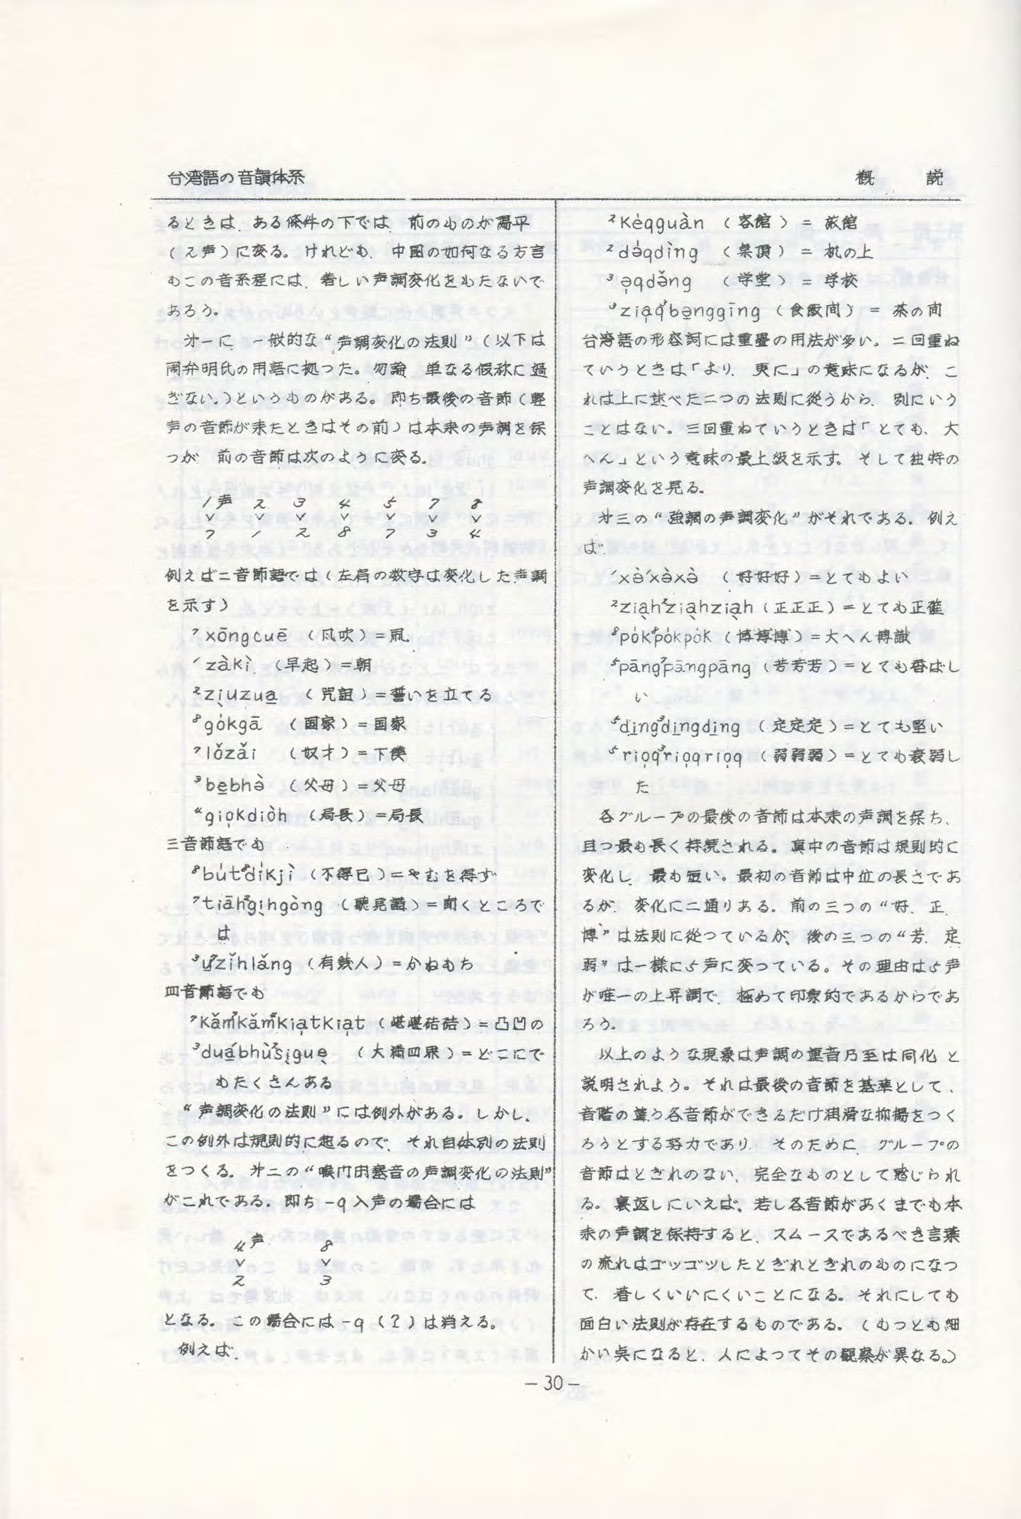 台湾語の音韻体系
概 説
るときは、ある條件の下では、前のものが高平
(2声)に変る。けれども、中国の如何なる方言
もこの音系程には、著しい声調変化をもたないで
あろう。
才一に、一般的な“声調変化の法則”(以下は
周弁明氏の用語に拠った。勿論、単なる仮称に過
ぎない。)というものがある。即ち最後の音節(軽
声の音節が来たときはその前)は本来の声調を保
つが、前の音節は次のように変る。
1声 2 3 4 5 7 8
∨ ∨ ∨ ∨ ∨ ∨ ∨
7 1 2 8 7 3 4
例えば二音節語では(左肩の数字は変化した声調
を示す)
⁷xōngcuē (風吹)=凧
¹zàkì (早起)=朝
²zịuzuạ (咒詛)=誓いを立てる
⁸gókgā (国家)=国家
⁷lǒzǎi (奴才)=下僕
³bẹbhə̀ (父母)=父母
⁴giọkdiòh (局長)=局長
三音節語でも
⁸bút⁸díkjì (不得已)=やむを得ず
⁷tiāh²gịhgòng (聴見講)=聞くところで
は
³ụ⁷zǐhlǎng (有銭人)=かねもち
四音節語でも
⁷kǎm⁷kǎm⁴kiạtkiạt (嵁嵁硈硈)=凸凹の
³duạ¹bhù²sịguẹ (大碼四界)=どこにで
もたくさんある
“声調変化の法則”には例外がある。しかし、
この例外は規則的に起るので、それ自体別の法則
をつくる。才二の“喉門閉塞音の声調変化の法則”
がこれである。即ち-q入声の場合には
4声 8
∨ ∨
2 3
となる。この場合には-q(ʔ)は消える。
例えば、
²kéqguàn (客館) = 旅館
²dóqdìng (桌頂) = 机の上
³ọqdǒng (学堂) = 学校
³ziạq³bọnggīng (食飯間) = 茶の間
台湾語の形容詞には重畳の用法が多い。二回重ね
ていうときは「より、更に」の意味になるが、こ
れは上に述べた二つの法則に従うから、別にいう
ことはない。三回重ねていうときは「とても、大
へん」という意味の最上級を示す。そして独特の
声調変化を見る。
才三の“強調の声調変化”がそれである。例え
ば、
¹xə̀¹xə̀xə̀ (好好好)=とてもよい
²ziạh²ziạhziạh (正正正)=とても正確
⁸pók⁸pókpók (博博博)=大へん博識
⁵pāng⁷pāngpāng (芳芳芳)=とても香ばし
い
⁵dịng³dịngdịng (定定定)=とても堅い
⁵riọq³riọqriọq (弱弱弱)=とても衰弱し
た
各グループの最後の音節は本来の声調を保ち、
且つ最も長く持続される。真中の音節は規則的に
変化し、最も短い。最初の音節は中位の長さであ
るが、変化に二通りある。前の三つの“好、正、
博”は法則に従っているが、後の三つの“芳、定
弱”は一様に5声に変っている。その理由は5声
が唯一の上昇調で、極めて印象的であるからであ
ろう。
以上のような現象は声調の諧音乃至は同化と
説明されよう。それは最後の音節を基準として、
音階の違う各音節ができるだけ円滑な抑揚をつく
ろうとする努力であり、そのために、グループの
音節はとぎれのない、完全なものとして感じられ
る。裏返しにいえば、若し各音節があくまでも本
来の声調を保持すると、スムースであるべき言葉
の流れはゴツゴツしたとぎれとぎれのものになっ
て、著しくいいにくいことになる。それにしても
面白い法則が存在するものである。(もっとも細
かい点になると、人によってその観察が異なる。)
－30－